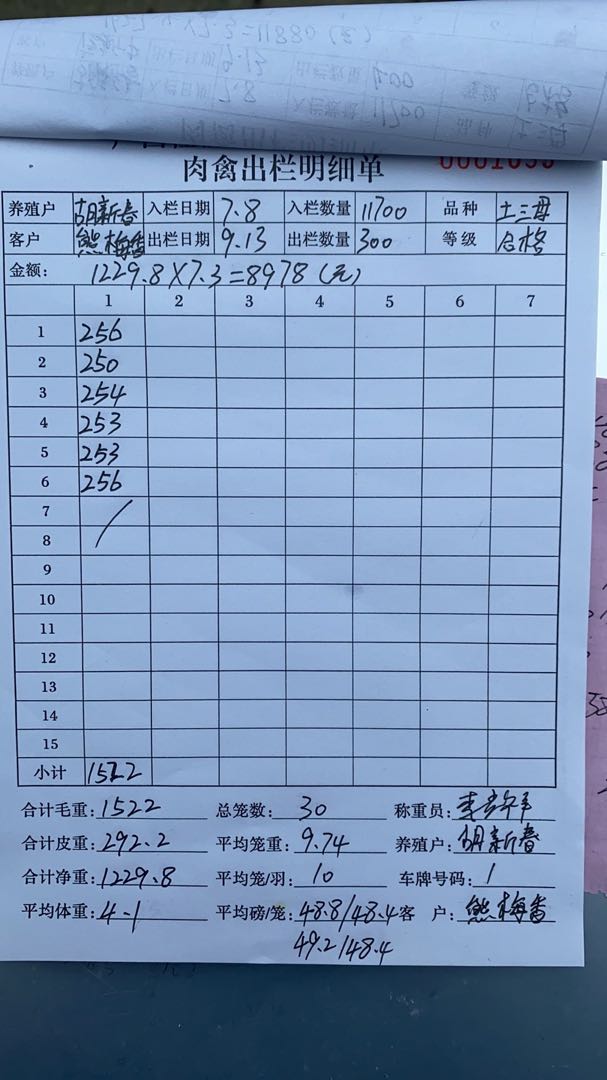 肉禽出栏明细单
养殖户 胡新春 入栏日期 7.8 入栏数量 11700 品种 土三母
客户 熊梅香 出栏日期 9.13 出栏数量 300 等级 合格
金额: 1229.8×7.3=8978(元)
1 2 3 4 5 6 7
1 256
2 250
3 254
4 253
5 253
6 256
7
8
9
10
11
12
13
14
15
小计 1522
合计毛重: 1522 总笼数: 30 称重员:
合计皮重: 292.2 平均笼重: 9.74 养殖户: 胡新春
合计净重: 1229.8 平均笼/羽: 10 车牌号码: /
平均体重: 4.1 平均磅/笼: 48.8/48.4 客户: 熊梅香
49.2/48.4